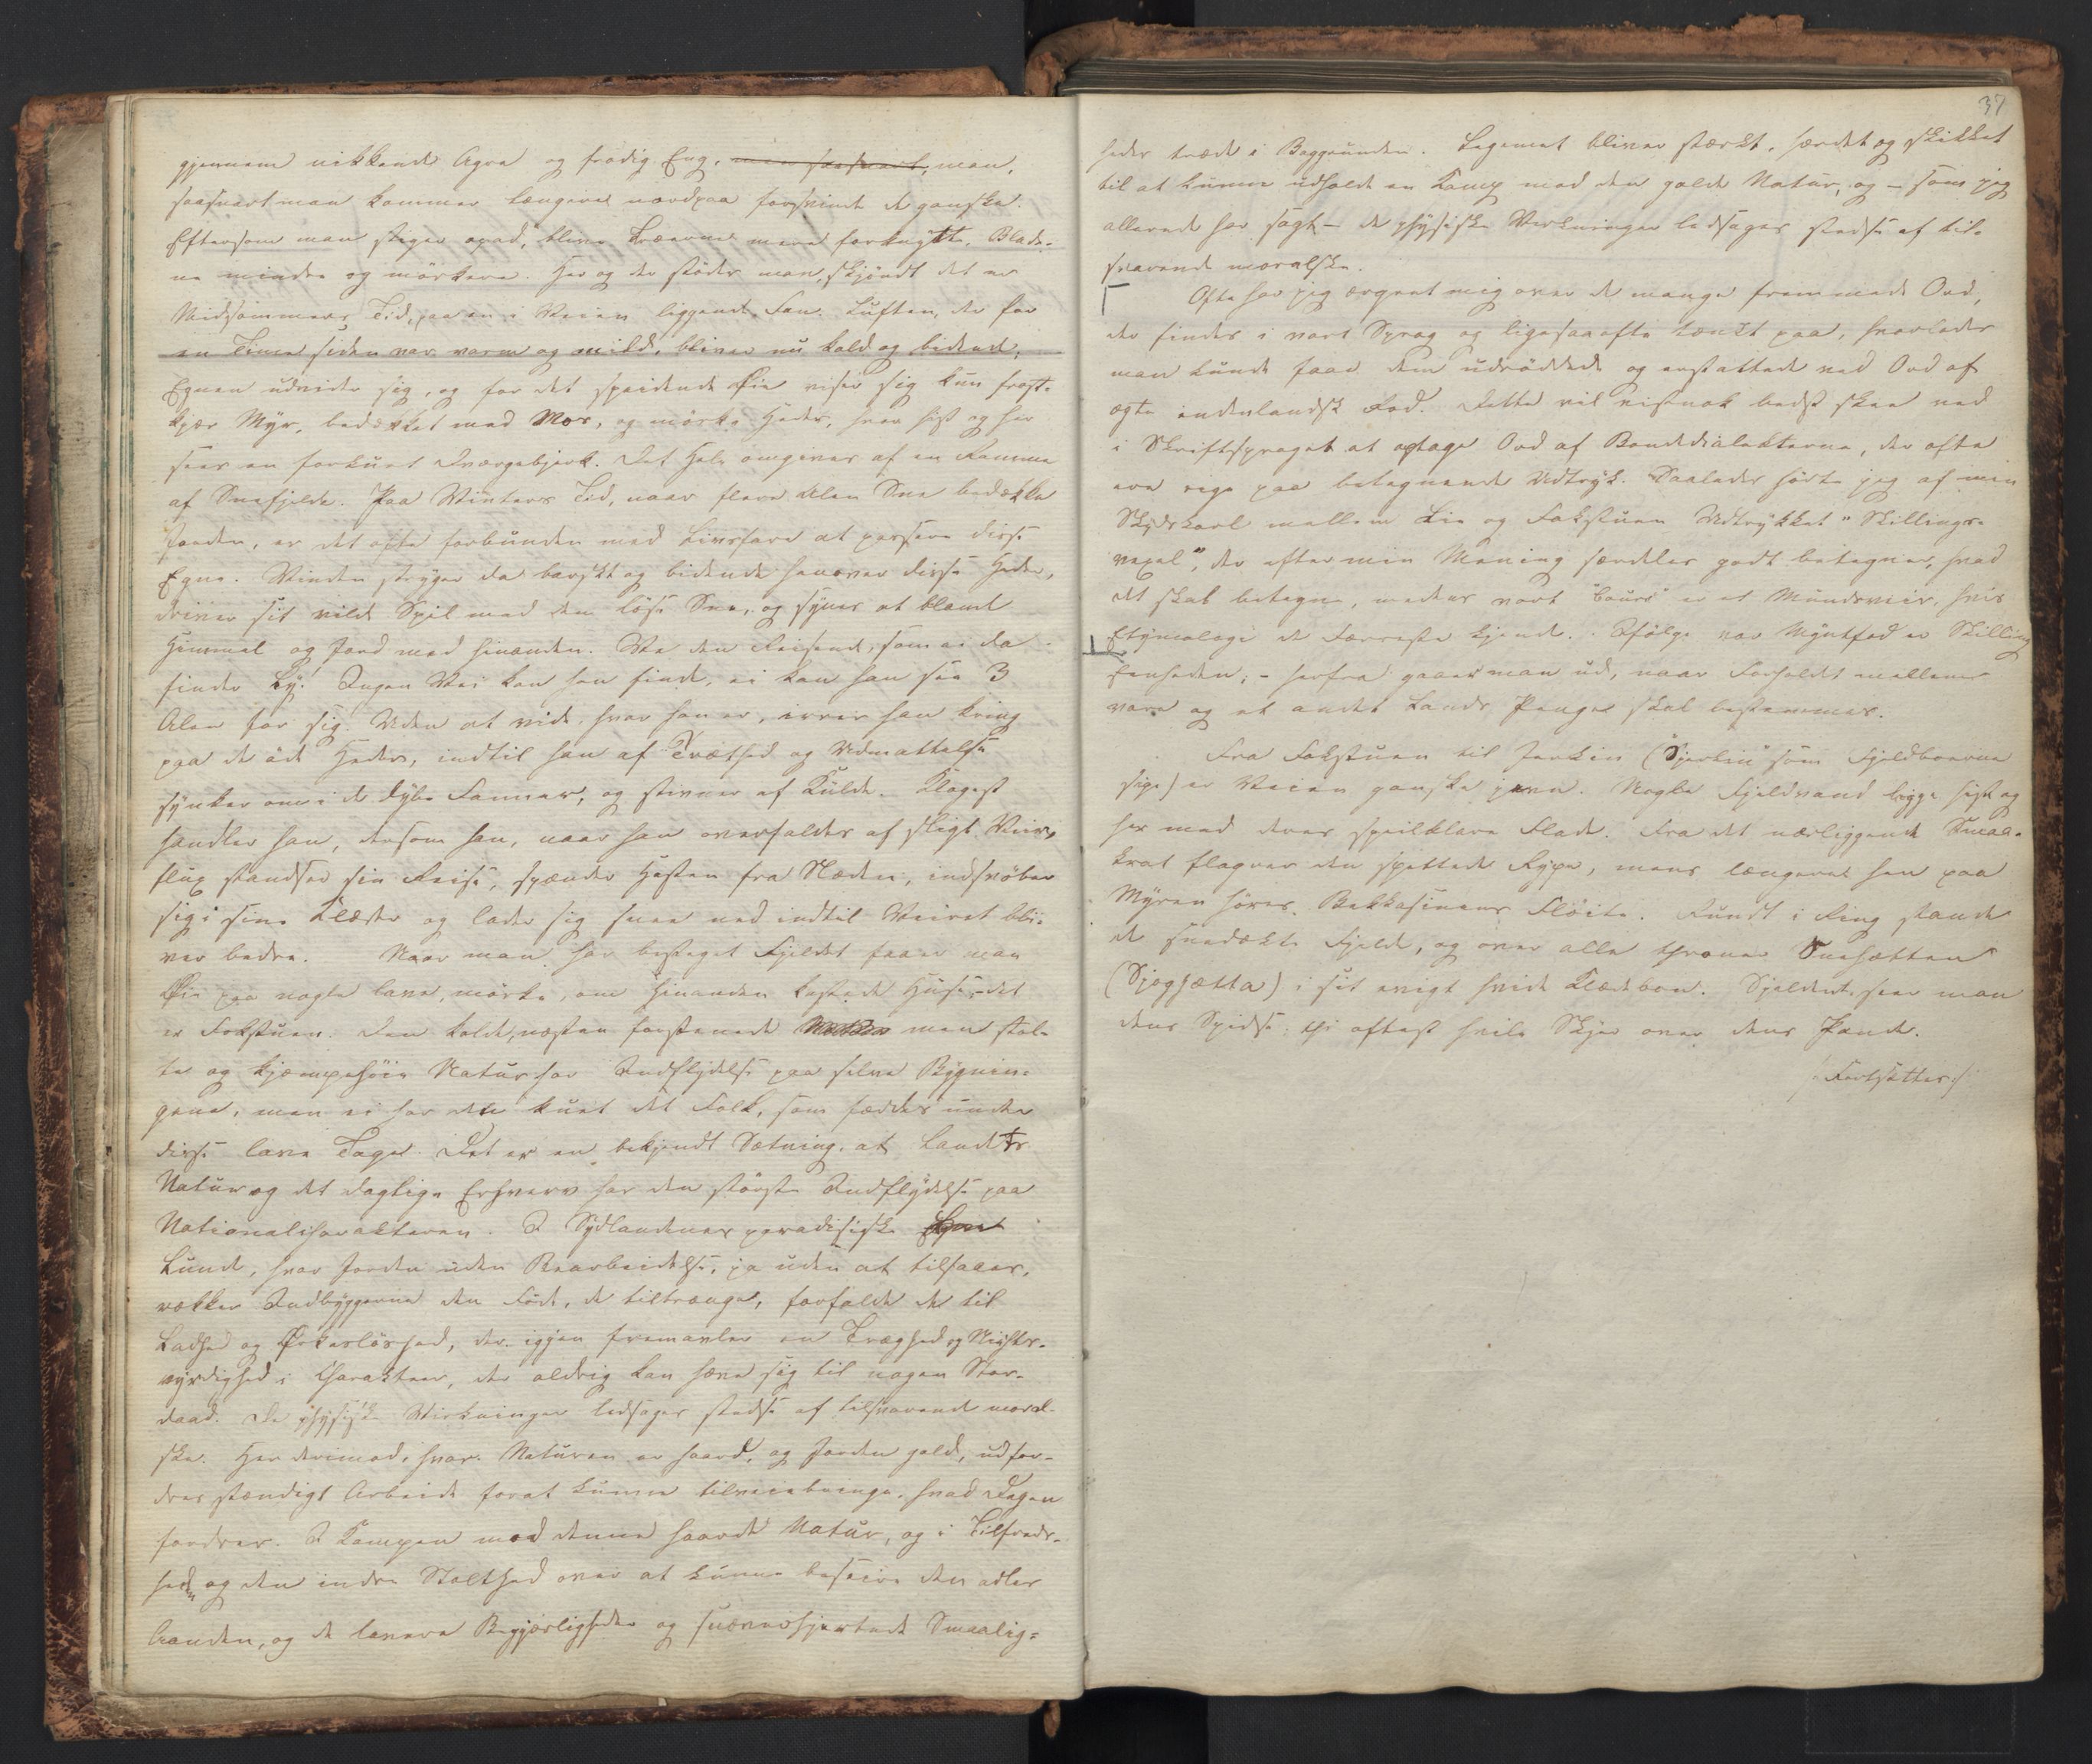 gjennem nikkende Agre og frodig Eng, men saasnart, men,
saasnart man kommer længere nordpaa forsvinde de ganske.
Eftersom man stiger opad, blive Træerne mere forknytte, Blade-
ne mindre og mörkere. Her og der støder man, skjöndt det er
Midsommers Tid, paa en i Veien liggende Fan. Luften, der for
en Time siden var varm og mild, bliver nu kold og bidende,
Egnen udvider sig, og for det speidende Øie viser sig kun frost-
kjær Myr, bedækket med Mos, og mörke Heder, hvor hist og her
sees en forkuet Dværgebjerk. Det Hele omgives af en Ramme
af Snefjelde. Paa Winters Tid, naar flere Alen Sne bedække
Jorden, er det ofte forbunden med Livsfare at passere disse
Egne. Vinden stryger da barskt og bidende henover disse Heder,
driver sit vilde Spil med den löse Sne, og synes at blande
Himmel og Jord med hinanden. Ve den Reisende, som ei da
finder Ly! Ingen Vei kan han finde, ei kan han see 3
Alen for sig. Uden at vide, hvor han er, irrer han kring
paa de öde Heder, indtil han af Træthed og Udmattelse
synker om i de dybe Fanner, og stivner af Kulde. Klogest
handler han, dersom han, naar han overfaldes af sligt Veir,
flux standser sin Reise, spænder Hesten fra Slæden, indsvöber
sig i sine Klæder og lader sig snee ned indtil Veiret bli-
ver bedre. Naar man har besteget Fjeldet faaer man
Øie paa nogle lave, mörke, om hinanden kastede Huse, – det
er Fokstuen. Den kolde, næsten forstenede men stol-
te og kjæmpehöie Natur har Indflydelse paa selve Bygnin-
gene, men ei har den kuet det Folk, som fæddes under
disse lave Tage. Det er en bekjendt Sætning, at Landets
Natur og det daglige Erhverv har den störste Indflydelse paa
Nationalcharakteren. I Sydlandenes paradisiske
Lunde, hvor Jorden uden Bearbeidelse, ja uden at tilsaaes,
rækker Indbyggerne den Föde, de tiltrænge, forfalde de til
Ladhed og Ørkeslöshed, der igjen fremavler en Træghed og
i Charakteer, der aldrig kan hæve sig til nogen Stor-
daad. De physiske Virkninger ledsages stedse af tilsvarende moral-
ske. Her derimod, hvor Naturen er haard, og Jorden gold, udfor-
dres stændigt Arbeide forat kunne tilveiebringe, hvad Dagen
fordrer. I Kampen mod denne haarde Natur, og i Tilfreds-
heden og den indre Stolthed over at kunne beseire den adles
Aanden, og de lavere Begjærligheder og snæverhjertede Smaalig-
37
heder træde i Baggrunden. Legemet bliver stærkt, hærdet og skikket
til at kunne udholde en Kamp mod den golde Natur, og – som jeg
allerede har sagt – de physiske Virkninger ledsages stedse af til-
svarende moralske.
Ofte har jeg ærgret mig over de mange fremmede Ord,
der findes i vort Sprog og ligesaa ofte tænkt paa, hvorledes
man kunde faae dem udröddede og erstattede ved Ord af
ægte indenlandsk Rod. Dette vil vistnok bedst skee ved
i Skriftsproget at optage Ord af Bondedialekterne, der ofte
ere rige paa betegnende Udtryk. Saaledes hörte jeg af min
Skydskarl mellem Lie og Fokstuen Udtrykket "Skillings-
vexel", der efter min Mening særdeles godt betegner, hvad
det skal betegne, medens vort "Cours" er et Mundsveir, hvis
Etymologi de Færreste kjende. Ifölge vor Myntfod er Skilling
Eenheden; – herfra gaaer man ud, naar Forholdet mellem
vore og et andet Lands Penge skal bestemmes.
Fra Fokstuen til Jerkin (Sjerkin som Fjeldboerne
sige) er Veien ganske jevn. Nogle Fjeldvand ligge hist og
her med deres speilklare Flade. Fra det nærliggende Smaa-
krat flagrer den spettede Rype, mens længere hen paa
Myren höres Bekkasinens Flöite. Rundt i Ring stande
de snedækte Fjelde, og over alle throner Snehætten
(Sjoghætta) i sit evigt hvide Klædebon. Sjeldent seer man
dens Spidse: thi oftest hvile Skyer over dens Pande.
(Fortsættes)